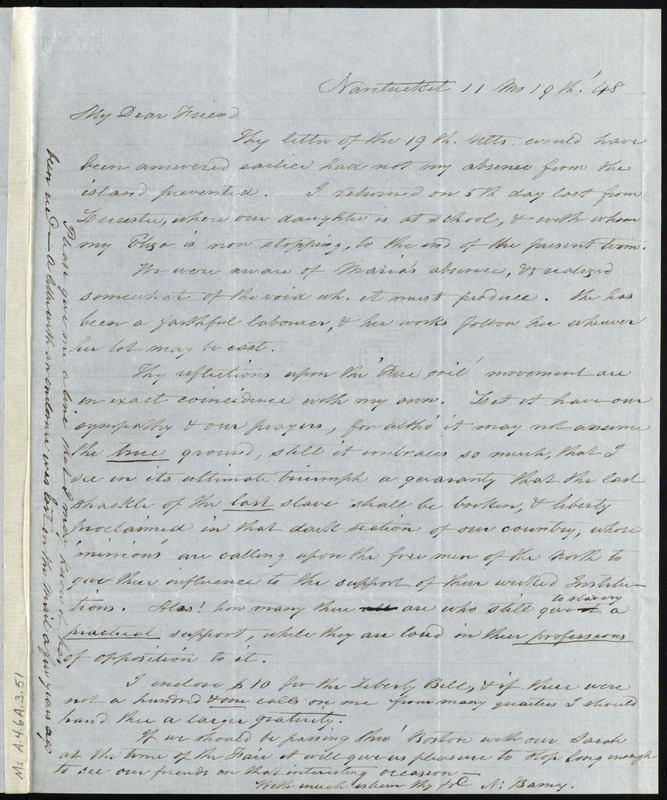 Nantucket 11 Mo 19th. '48
My Dear Friend
Thy letter of the 19th. ulto. would have
been answered earlier had not my absence from the
island prevented. I returned on 5th day last from
Leicester, where our daughter is at school, & with whom
my Eliza is now stopping, to the end of the present term.
We were aware of Maria's absence, & realized
somewhat of the void wh. it must produce. She has
been a faithful labourer, & her works follow her wherever
her lot may be cast.
Thy reflections upon the 'Free soil' movement are
in exact coincidence with my own. Let it have our
sympathy & our prayers, for altho' it may not assume
the true ground, still it embraces so much, that I
see in its ultimate triumph a guaranty that the last
shackle of the last slave shall be broken, & liberty
proclaimed in that dark section of our country, whose
'minions' are calling upon the free men of the North to
give their influence to the support of their wicked Institu-
tions. Alas! how many there are who still give to slavery a
practical support, while they are loud in their professions
of opposition to it.
I enclose $10 for the Liberty Bell, & if there were
not a hundred & one calls on me from many quarters I should
hand thee a larger gratuity.
If we should be passing thro' Boston with our Sarah
at the time of the Fair it will give us pleasure to stop long enough
to see our friends on that interesting occasion —
With much esteem thy frd N. Barney.
Please give me a line that I may know it has
been recd — a letter with an enclosure was lost in the mail a few years ago
Ms. A.4.6A.3.51